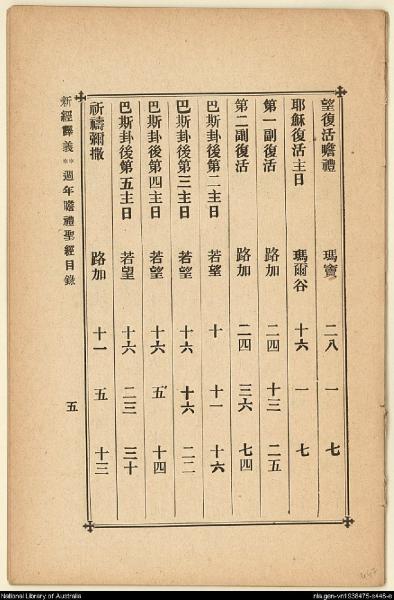 望復活瞻禮 瑪竇 二八 一 七
耶穌復活主日 瑪爾谷 十六 一 七
第一副復活 路加 二四 十三 二五
第二副復活 路加 二四 三六 七四
巴斯卦後第二主日 若望 十 十一 十六
巴斯卦後第三主日 若望 十六 十六 二二
巴斯卦後第四主日 若望 十六 五 十四
巴斯卦後第五主日 若望 十六 二三 三十
祈禱彌撒 路加 十一 五 十三
新經譯義 週年瞻禮聖經目錄 五
National Library of Australia
nla.gen-vn1938475-s446-e